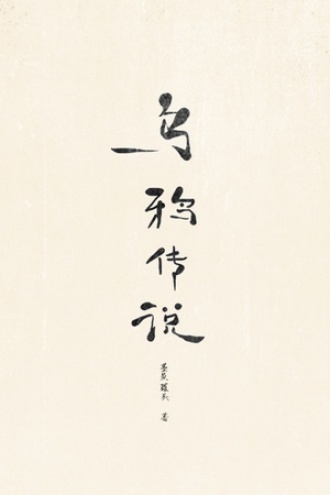 乌鸦传说
著